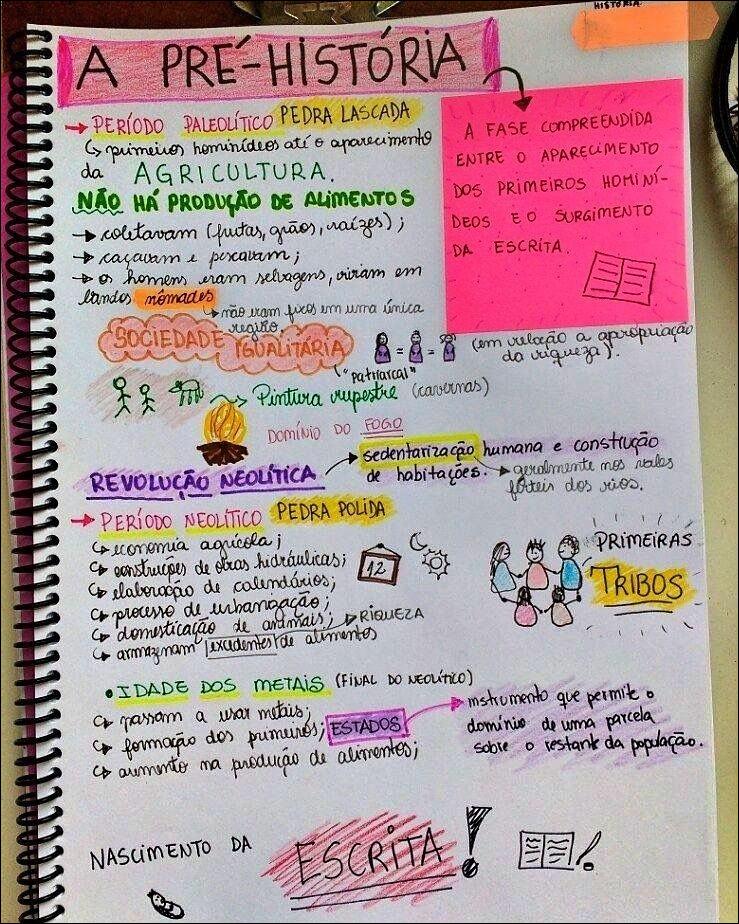 HISTÓRIA
A PRÉ-HISTÓRIA
A FASE COMPREENDIDA
ENTRE O APARECIMENTO
DOS PRIMEIROS HOMINÍ-
DEOS E O SURGIMENTO
DA ESCRITA.
→ PERÍODO PALEOLÍTICO PEDRA LASCADA
↳ primeiros hominídeos até o aparecimento
da AGRICULTURA.
NÃO HÁ PRODUÇÃO DE ALIMENTOS
→ coletavam (frutas, grãos, raízes);
→ caçavam e pescavam;
→ os homens eram selvagens, viviam em
bandos nômades
↳ não eram fixos em uma única
região.
SOCIEDADE IGUALITÁRIA
= =
(em relação a apropriação
da riqueza).
("patriarcal"
↝ Pintura rupestre (cavernas)
DOMÍNIO DO FOGO
REVOLUÇÃO NEOLÍTICA → sedentarização humana e construção
de habitações. → geralmente nos vales
férteis dos rios.
→ PERÍODO NEOLÍTICO PEDRA POLIDA
↳ economia agrícola;
↳ construções de obras hidráulicas;
↳ elaboração de calendários;
↳ processo de urbanização;
↳ domesticação de animais;
↳ armazenam excedentes de alimentos
→ RIQUEZA
12
PRIMEIRAS
TRIBOS
• IDADE DOS METAIS (FINAL DO NEOLÍTICO)
↳ passam a usar metais;
↳ formação dos primeiros; ESTADOS
↳ aumento na produção de alimentos;
→ instrumento que permite o
domínio de uma parcela
sobre o restante da população.
NASCIMENTO DA ESCRITA!